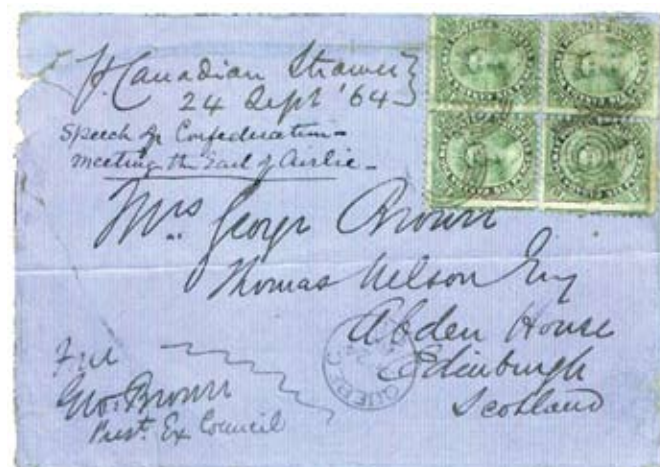 Pr. Canadian Steamer
24 Sept '64
Speech for Confederation -
meeting the Earl of Airlie -
Mrs George Brown
Thomas Nelson Esq
Abden House
Edinburgh
Scotland
Free
Geo. Brown
Prest. Ex Council
QUEBEC